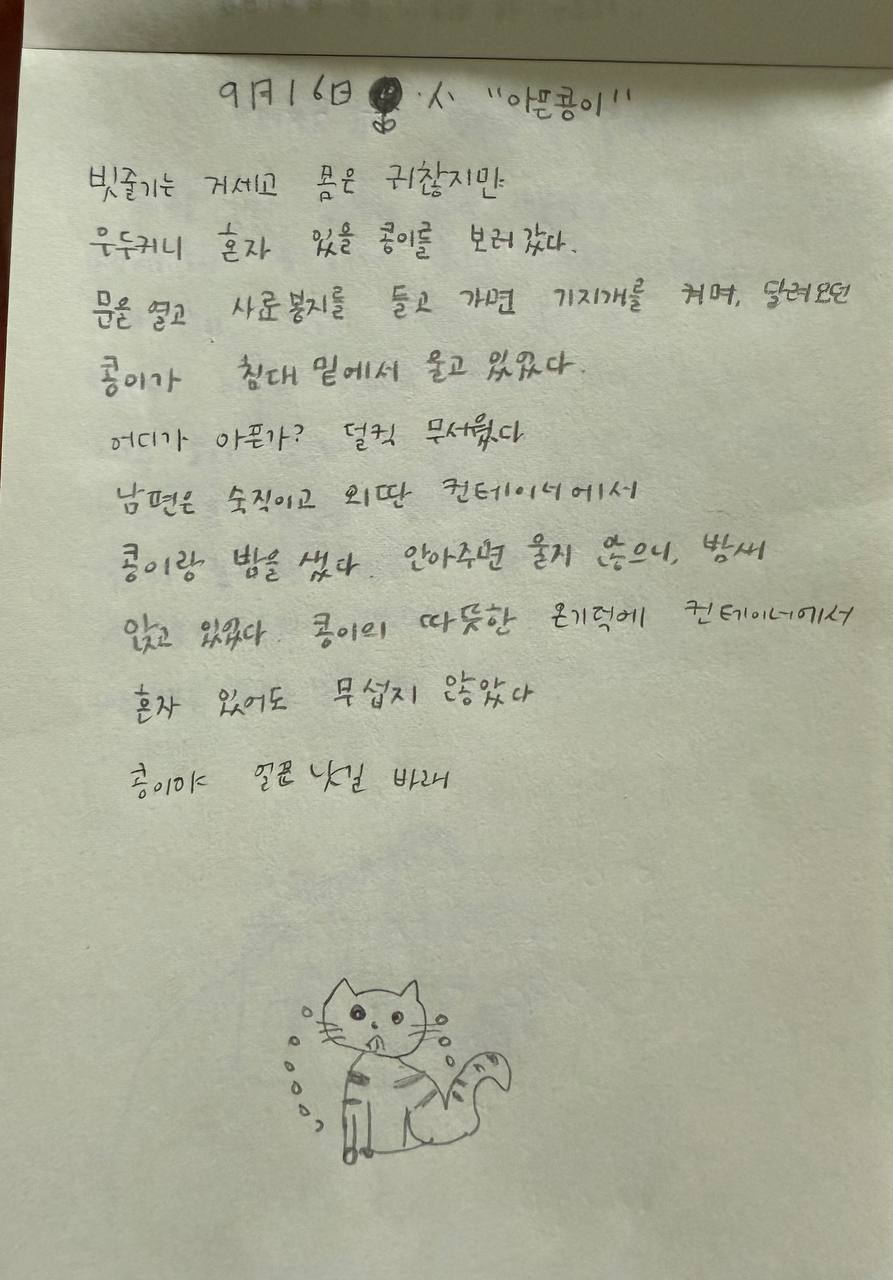 9月16日 .시 "아픈콩이"
빗줄기는 거세고 몸은 귀찮지만
우두커니 혼자 있을 콩이를 보러갔다.
문을 열고 사료봉지를 들고 가면 기지개를 켜며, 달려오던
콩이가 침대 밑에서 울고 있었다.
어디가 아픈가? 덜컥 무서웠다
남편은 숙직이고 외딴 컨테이너에서
콩이랑 밤을 샜다. 안아주면 울지 않으니, 밤새
앉고 있었다. 콩이의 따뜻한 온기덕에 컨테이너에서
혼자 있어도 무섭지 않았다
콩이야 얼른 낫길 바래